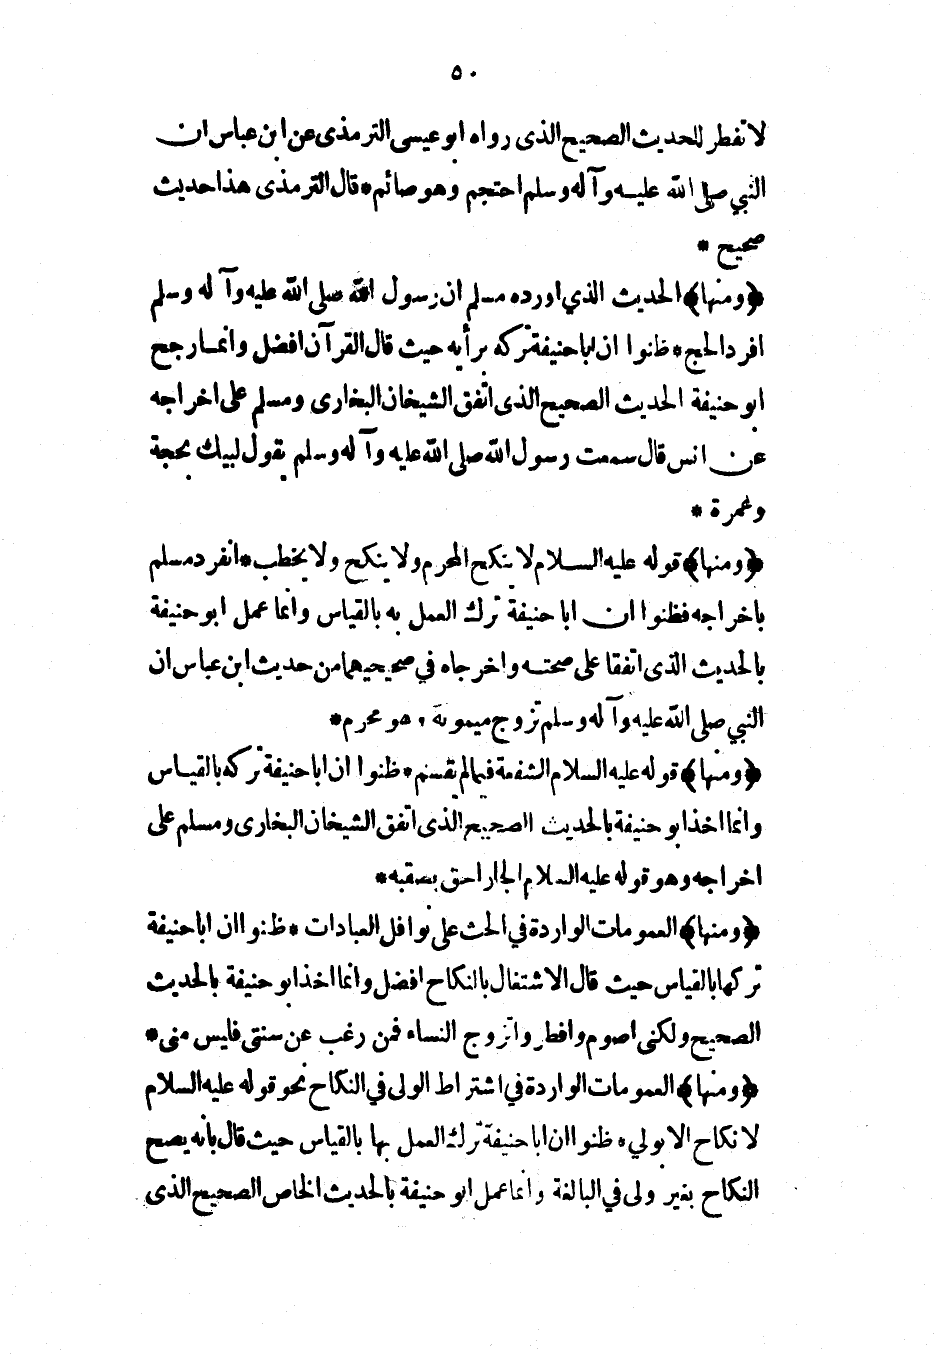 ٥٠
لا تفطر للحديث الصحيح الذى رواه ابو عيسى الترمذى عن ابن عباس ان
النبي صلى الله عليه وآله وسلم احتجم وهو صائم * قال الترمذى هذا حديث
صحيح *
﴿ومنها﴾ الحديث الذي اورده مسلم ان رسول الله صلى الله عليه وآله وسلم
افرد الحج * ظنوا ان ابا حنيفة تركه برأيه حيث قال القرآن افضل وانما رجح
ابو حنيفة الحديث الصحيح الذى اتفق الشيخان البخارى ومسلم على اخراجه
عن انس قال سمعت رسول الله صلى الله عليه وآله وسلم يقول لبيك بحجة
وعمرة *
﴿ومنها﴾ قوله عليه السلام لا ينكح المحرم ولا ينكح ولا يخطب * انفرد مسلم
باخراجه فظنوا ان ابا حنيفة ترك العمل به بالقياس وانما عمل ابو حنيفة
بالحديث الذى اتفقا على صحته واخرجاه في صحيحيهما من حديث ابن عباس ان
النبي صلى الله عليه وآله وسلم تزوج ميمونة وهو محرم *
﴿ومنها﴾ قوله عليه السلام الشفعة فيما لم يقسم * ظنوا ان ابا حنيفة تركه بالقياس
وانما اخذ ابو حنيفة بالحديث الصحيح الذى اتفق الشيخان البخارى ومسلم على
اخراجه وهو قوله عليه السلام الجار احق بصقبه *
﴿ومنها﴾ العمومات الواردة في الحث على نوافل العبادات * ظنوا ان ابا حنيفة
تركها بالقياس حيث قال الاشتغال بالنكاح افضل وانما اخذ ابو حنيفة بالحديث
الصحيح ولكنى اصوم وافطر واتزوج النساء فمن رغب عن سنتى فليس منى *
﴿ومنها﴾ العمومات الواردة في اشتراط الولى في النكاح نحو قوله عليه السلام
لا نكاح الا بولي * ظنوا ان ابا حنيفة ترك العمل بها بالقياس حيث قال بأنه يصح
النكاح بغير ولى في البالغة وانما عمل ابو حنيفة بالحديث الخاص الصحيح الذى